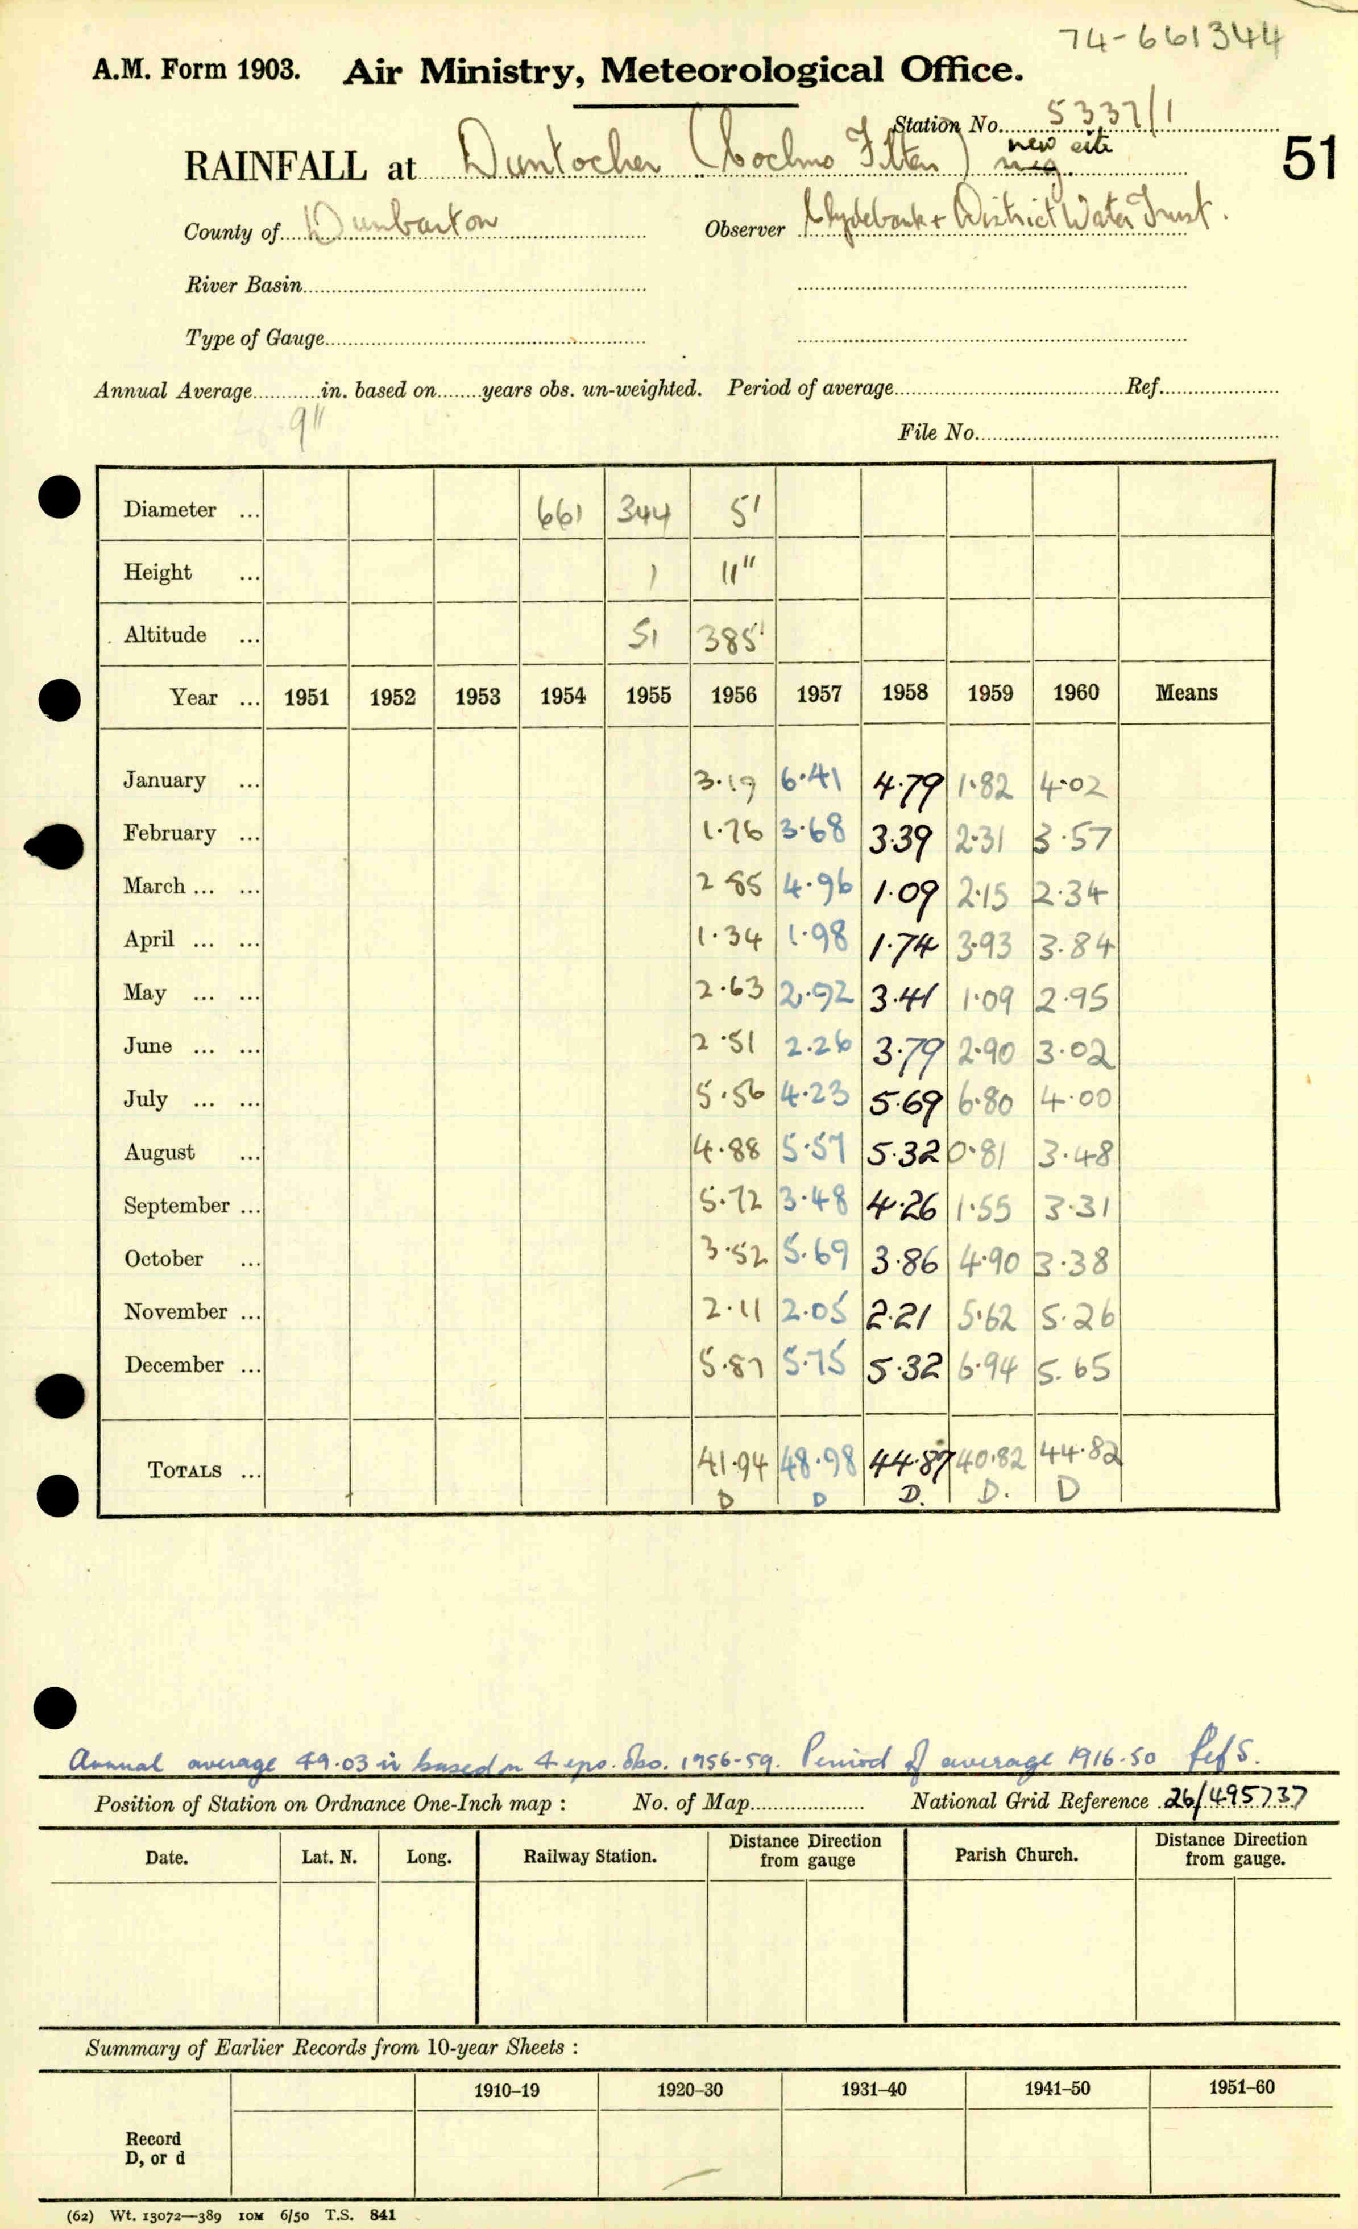 74-661344
A.M. Form 1903. Air Ministry, Meteorological Office.
Station No. 5337/1
new site
RAINFALL at Duntocher (Cochno Filters) 51
County of Dunbarton Observer Clydebank + District Water Trust.
River Basin
Type of Gauge
Annual Average in. based on years obs. un-weighted. Period of average Ref.
9"
File No.
Diameter ... 661 344 5"
Height ... 1 11"
Altitude ... 51 385'
Year ... 1951 1952 1953 1954 1955 1956 1957 1958 1959 1960 Means
January ... 3.19 6.41 4.79 1.82 4.02
February ... 1.76 3.68 3.39 2.31 3.57
March ... ... 2.85 4.96 1.09 2.15 2.34
April ... ... 1.34 1.98 1.74 3.93 3.84
May ... ... 2.63 2.92 3.41 1.09 2.95
June ... ... 2.51 2.26 3.79 2.90 3.02
July ... ... 5.56 4.23 5.69 6.80 4.00
August ... 4.88 5.57 5.32 0.81 3.48
September ... 5.72 3.48 4.26 1.55 3.31
October ... 3.52 5.69 3.86 4.90 3.38
November ... 2.11 2.05 2.21 5.62 5.26
December ... 5.87 5.75 5.32 6.94 5.65
TOTALS ... 41.94 48.98 44.87 40.82 44.82
D D D. D. D
Annual average 49.03 in based on 4 obs. 1956-59. Period of average 1916-50 Ref 5.
Position of Station on Ordnance One-Inch map : No. of Map National Grid Reference 26/495737
Date. Lat. N. Long. Railway Station. Distance Direction from gauge Parish Church. Distance Direction from gauge.
Summary of Earlier Records from 10-year Sheets :
1910–19 1920–30 1931–40 1941–50 1951–60
Record
D, or d
(62) Wt. 13072—389 10M 6/50 T.S. 841